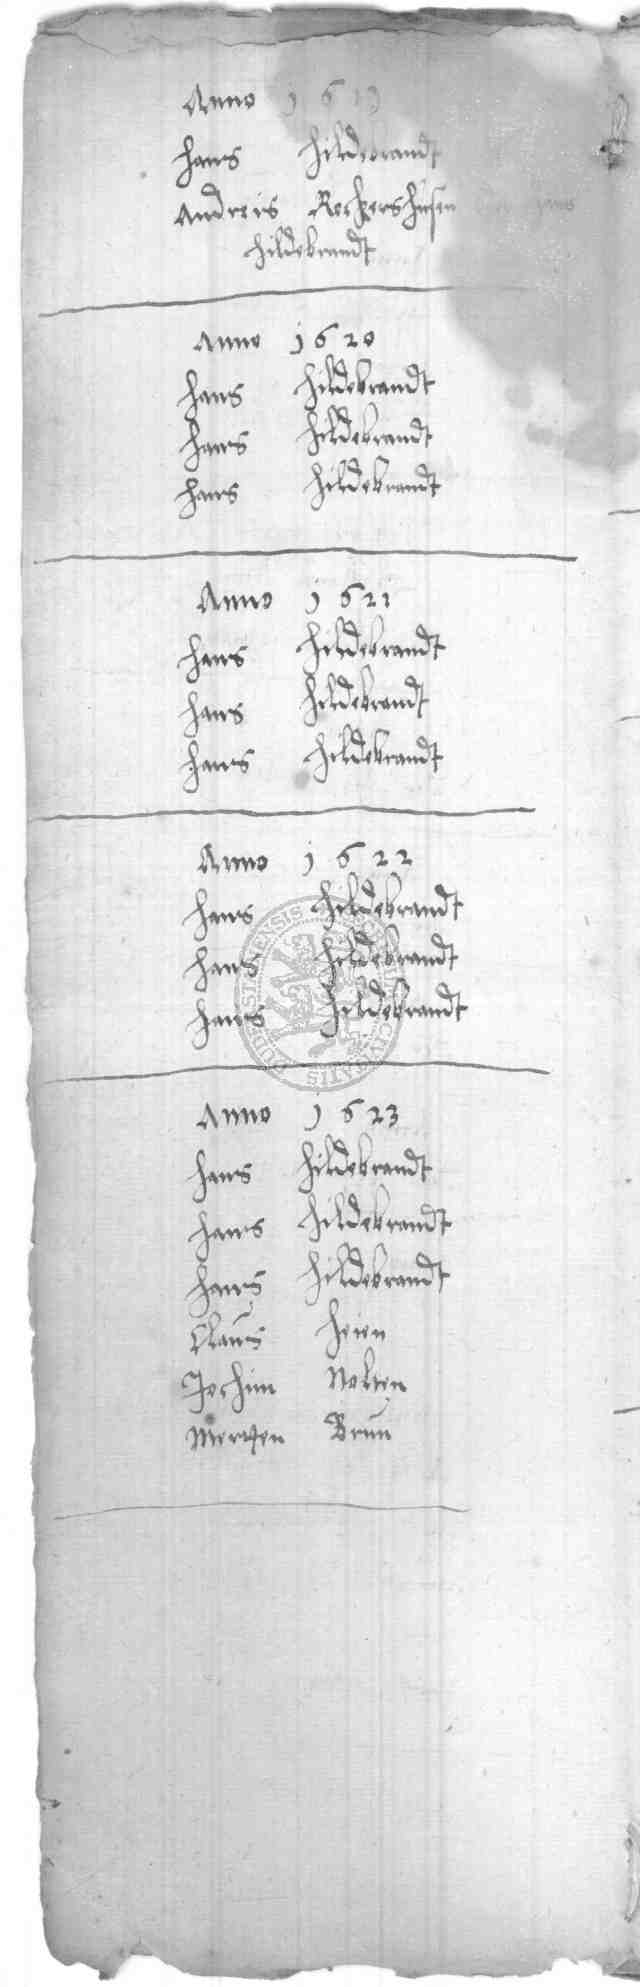 Anno 1619
Hans Hildebrandt
Andreis Reckershusen Hans
Hildebrandt
Anno 1620
Hans Hildebrandt
Hans Hildebrandt
Hans Hildebrandt
Anno 1621
Hans Hildebrandt
Hans Hildebrandt
Hans Hildebrandt
Anno 1622
Hans Hildebrandt
Hans Hildebrandt
Hans Hildebrandt
Anno 1623
Hans Hildebrandt
Hans Hildebrandt
Hans Hildebrandt
Claus Heien
Jochim Nolten
Merten Brun